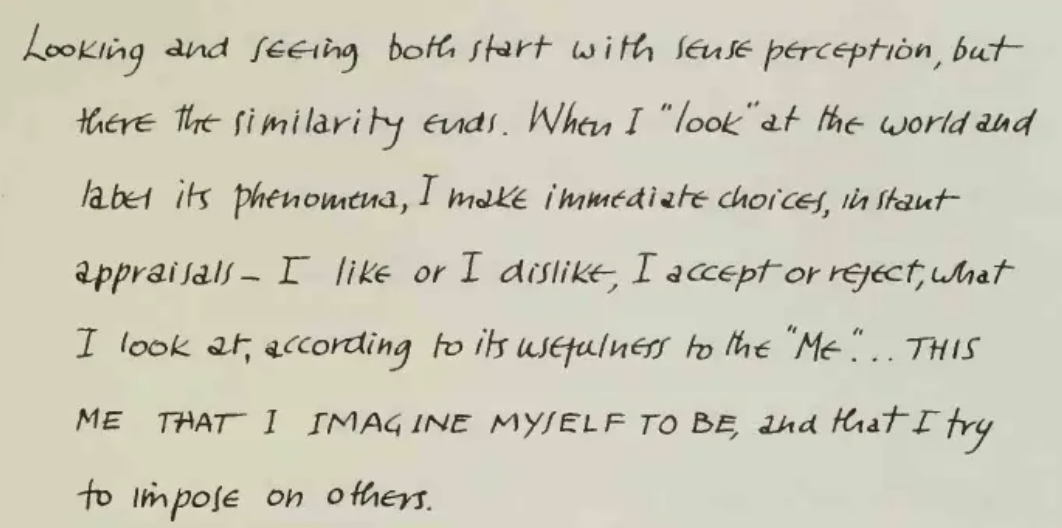 Looking and seeing both start with sense perception, but
there the similarity ends. When I "look" at the world and
label its phenomena, I make immediate choices, instant
appraisals – I like or I dislike, I accept or reject, what
I look at, according to its usefulness to the "Me"... THIS
ME THAT I IMAGINE MYSELF TO BE, and that I try
to impose on others.